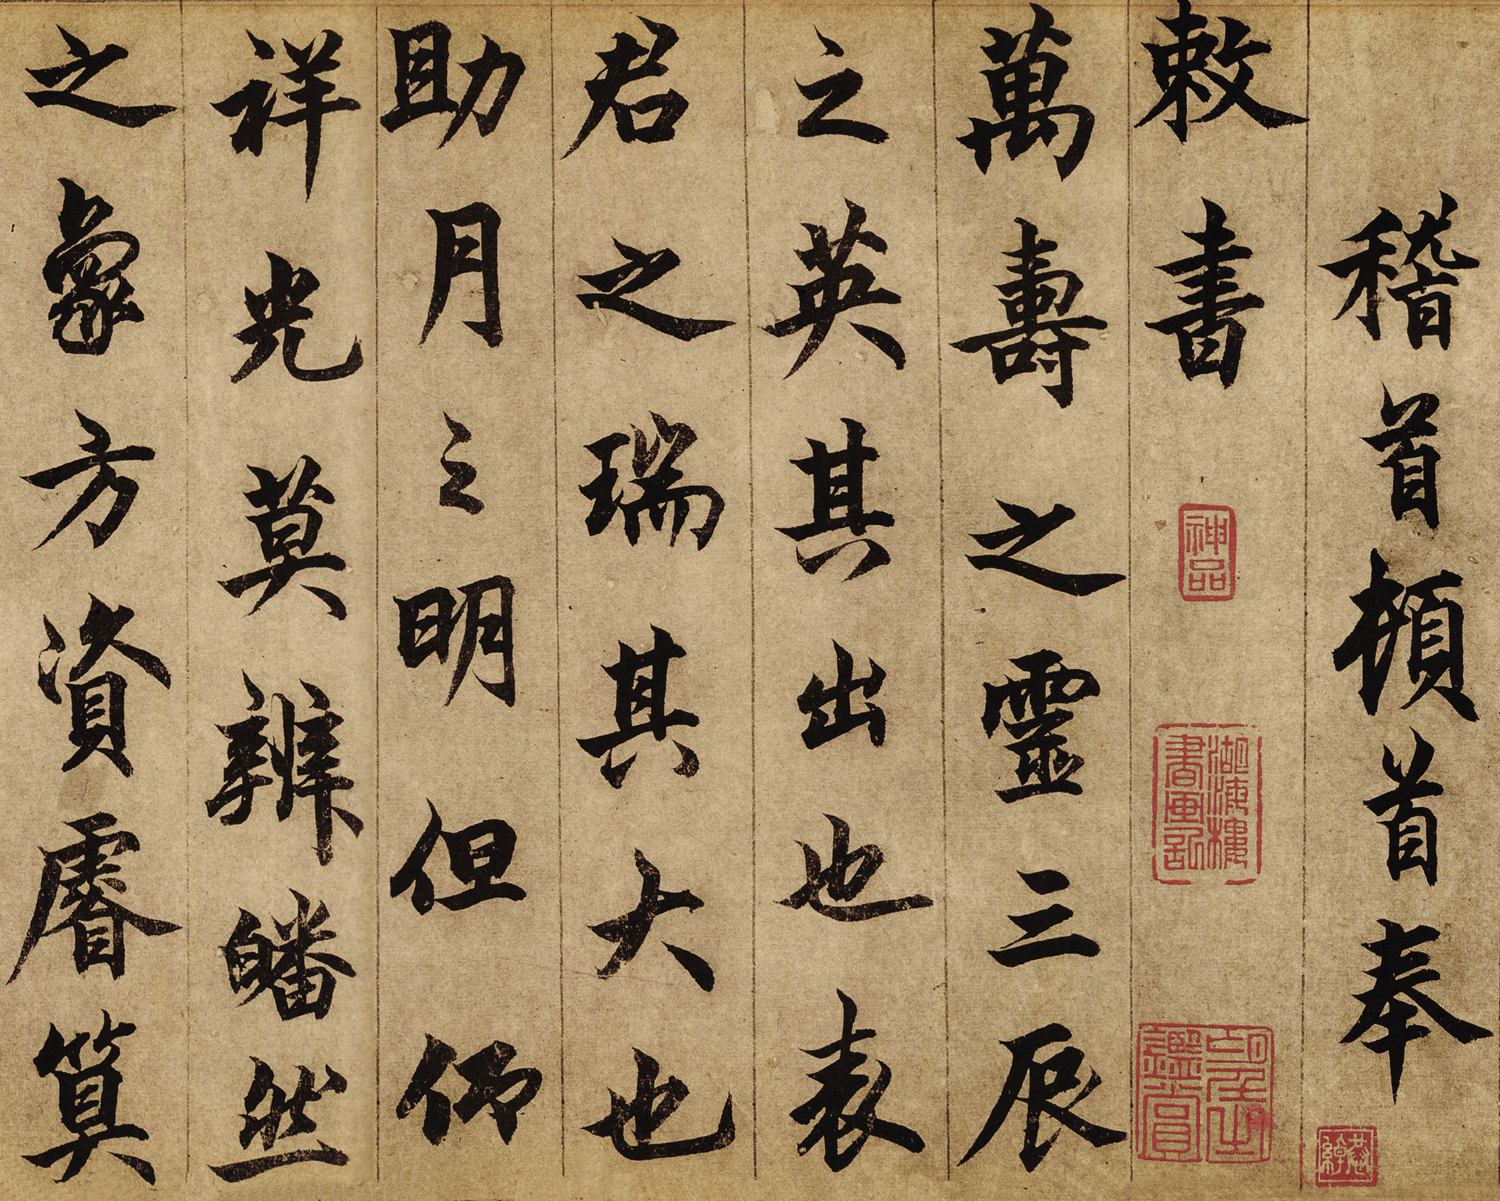 稽首頓首奉
敕書
神品
湖海樓書畫記
萬壽之靈三辰
之英其出也表
君之瑞其大也
助月之明但仰
祥光莫辨皤然
之象方資睿算